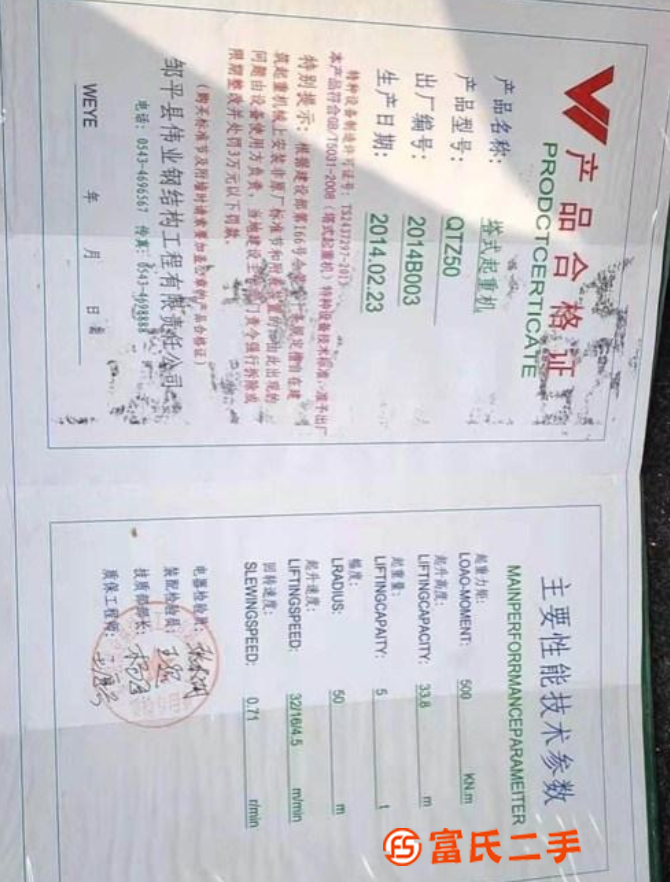 产品合格证
PRODCTCERTICATE
产品名称: 塔式起重机
产品型号: QTZ50
出厂编号: 2014B003
生产日期: 2014.02.23
特种设备制造许可证号: TS2437297-2013
本产品符合GB/T5031-2008(塔式起重机)特种设备技术标准、准予出厂
特别提示: 根据建设部第166号令 规定擅自在建
筑起重机械上安装非原厂标准节和附着装置 由此出现的
问题由设备使用方负责, 当地建设主 门责令强行拆除或
限期整改并处罚3万元以下罚款。
(购买标准节及附墙时请索要加盖公章的产品合格证)
邹平县伟业钢结构工程有限责任公司
电话: 0543-4696567 传真: 0543-4698888
WEYE 年 月 日
主要性能技术参数
MAINPERFORRMANCEPARAMEITER
起重力矩:
LOAO-MOMENT: 500 KN.m
起升高度:
LIFTINGCAPACITY: 33.8 m
起重量:
LIFTINGCAPAITY: 5 t
幅度:
LRADIUS: 50 m
起升速度:
LIFTINGSPEED: 32/16/4.5 m/min
回转速度:
SLEWINGSPEED: 0.71 r/min
电器检验员:
装配检验员:
技质部部长:
质保工程师:
富氏二手